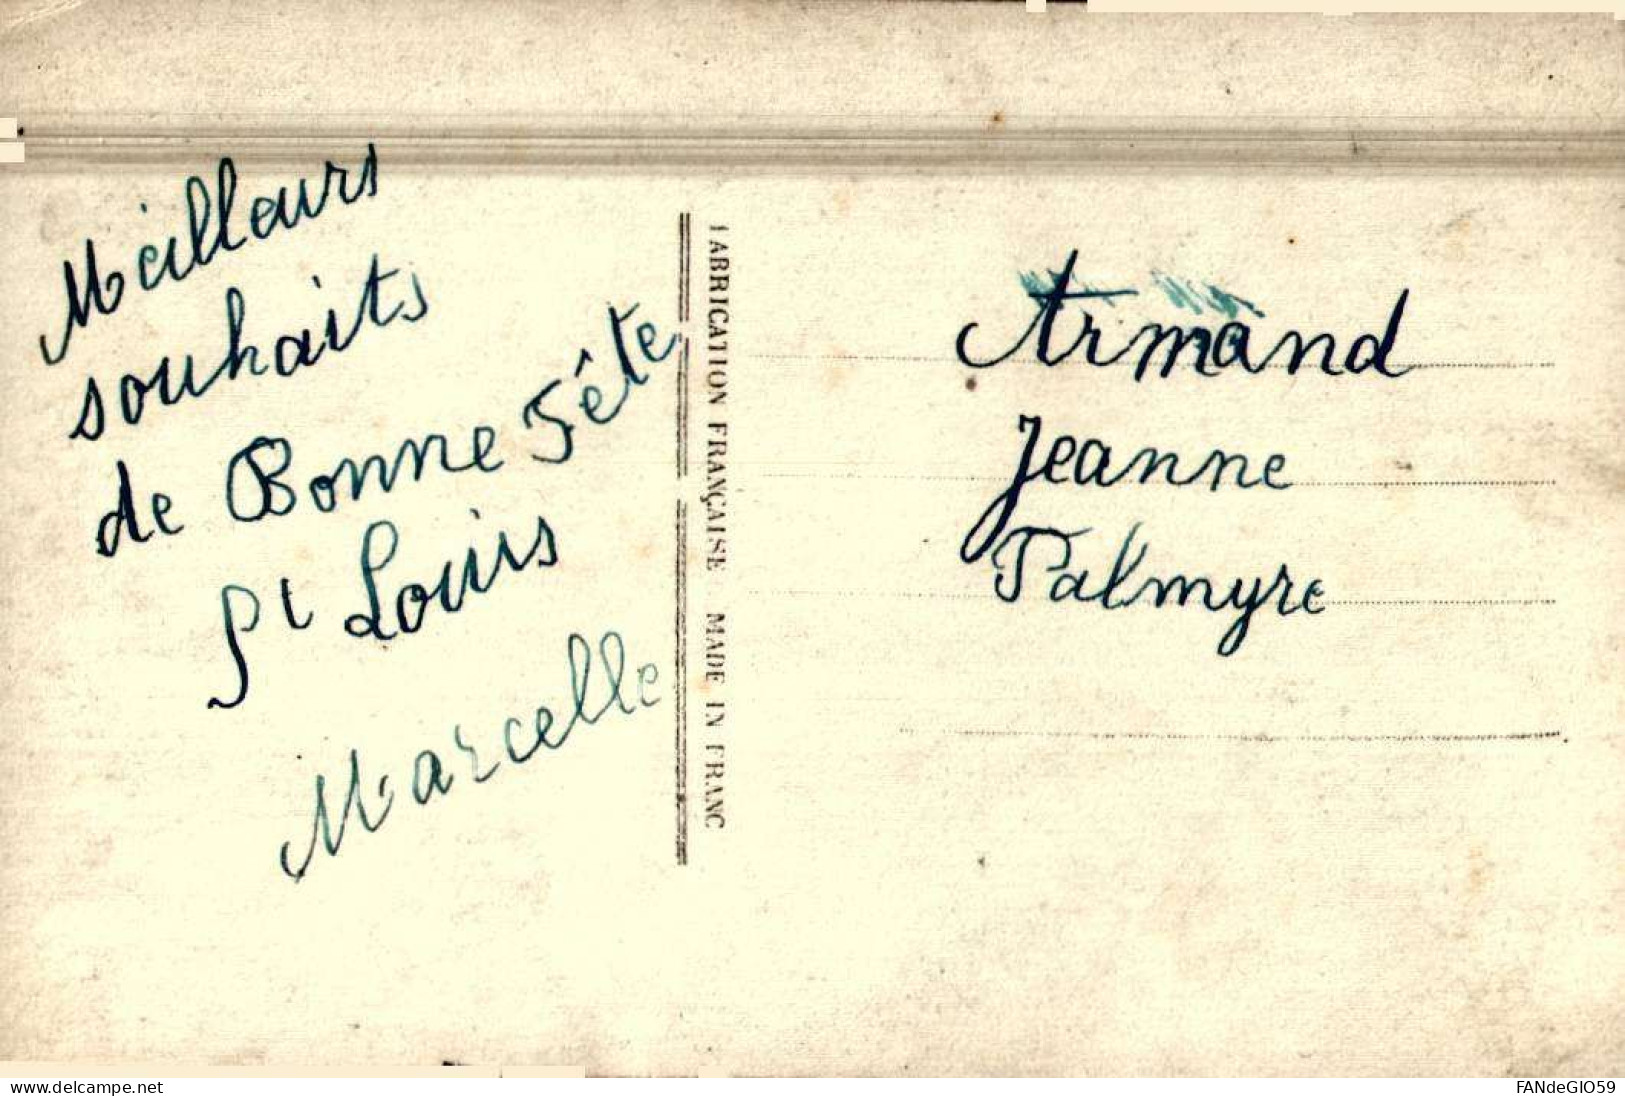 Meilleurs
souhaits
de Bonne Fête
St Louis
Marcelle
FABRICATION FRANÇAISE MADE IN FRANC
Armand
Jeanne
Palmyre
www.delcampe.net
FANdeGIO59